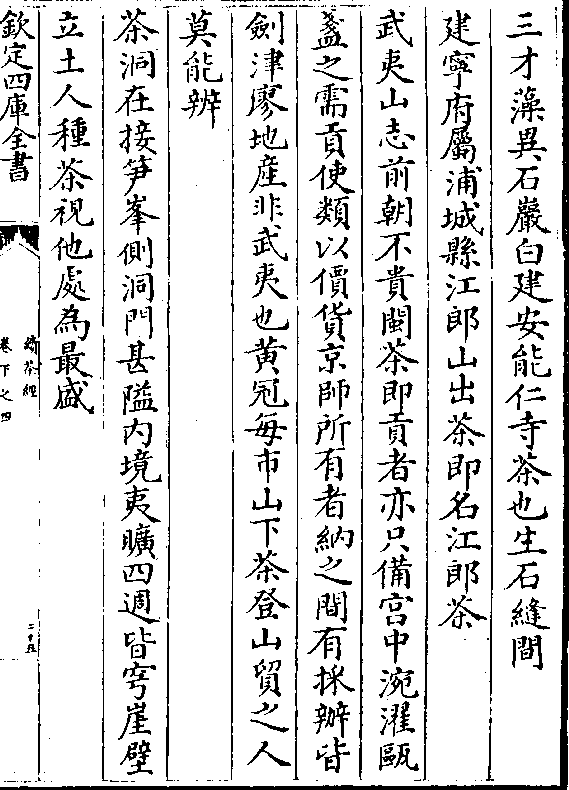 三才藻異石巖白建安能仁寺茶也生石縫間
建寧府屬浦城縣江郎山出茶即名江郎茶
武夷山志前朝不貴閩茶即貢者亦只備宮中浣濯甌
盞之需貢使類以價貨京師所有者納之間有採辦皆
劍津廖地産非武夷也黄冠每市山下茶登山貿之人
莫能辨
茶洞在接笋峯側洞門甚隘内境夷曠四週皆穹崖壁
立土人種茶視他處為最盛
欽定四庫全書
續茶經
卷下之四
二十五